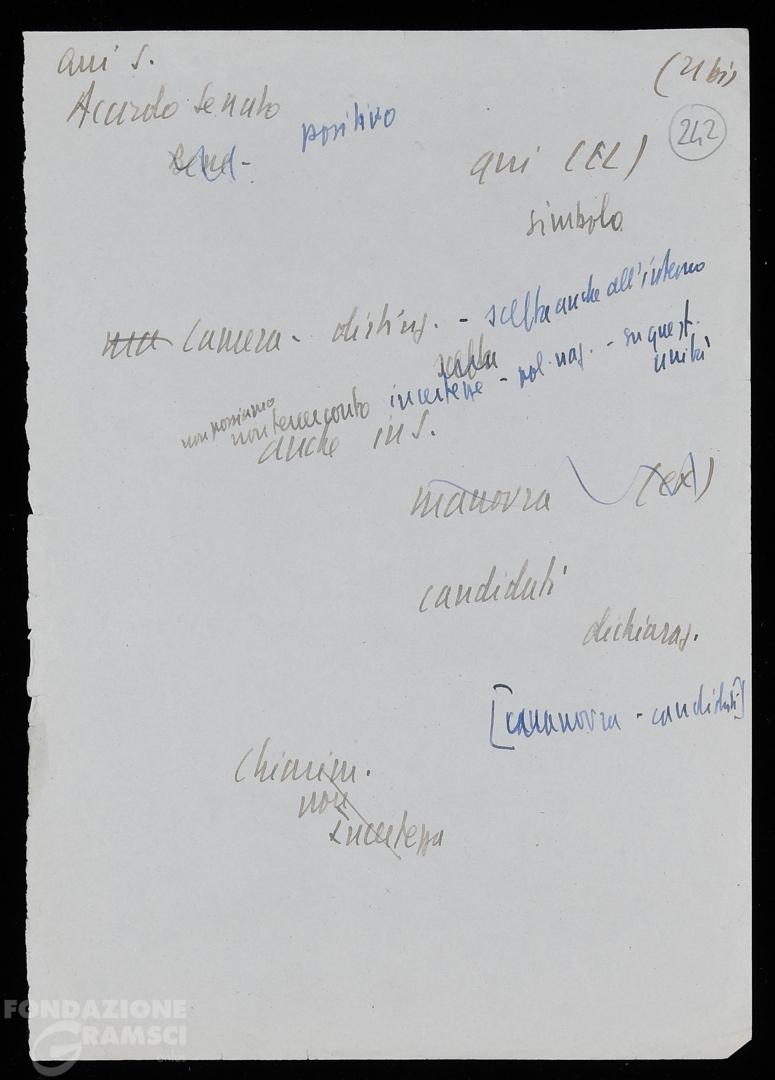 qui S.
(21 bis
Accordo Senato
positivo
242
qui (EL)
simbolo
ma Camera - disting. - scelta anche all'interno
scelta
non possiamo
non tener conto incertezze - pol. naz. - su quest.
unità
anche in S.
manovra
candidati
dichiaraz.
- candidati]
Chiarim.
non
incertezza
FONDAZIONE
GRAMSCI
onlus